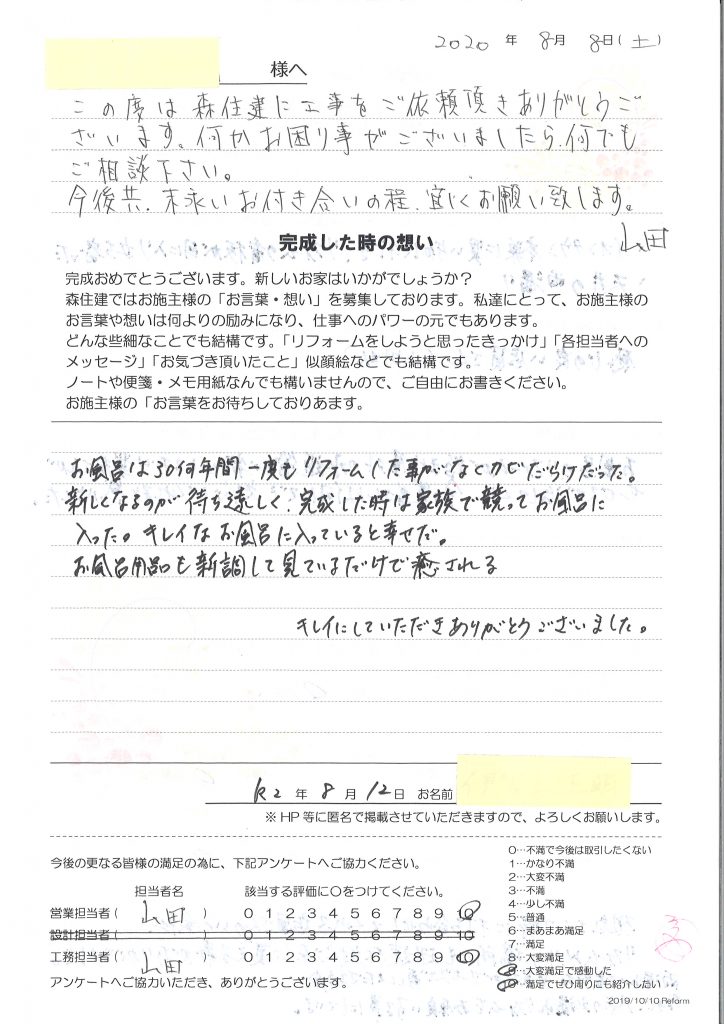 2020 年 8月 8日(土)
様へ
この度は森住建に工事をご依頼頂きありがとうご
ざいます。何かお困り事がございましたら、何でも
ご相談下さい。
今後共、末永いお付き合いの程、宜しくお願い致します。
山田
完成した時の想い
完成おめでとうございます。新しいお家はいかがでしょうか?
森住建ではお施主様の「お言葉・想い」を募集しております。私達にとって、お施主様の
お言葉や想いは何よりの励みになり、仕事へのパワーの元でもあります。
どんな些細なことでも結構です。「リフォームをしようと思ったきっかけ」「各担当者への
メッセージ」「お気づき頂いたこと」似顔絵などでも結構です。
ノートや便箋・メモ用紙なんでも構いませんので、ご自由にお書きください。
お施主様の「お言葉をお待ちしておりあます。
お風呂は30何年間一度もリフォームした事がなくカビだらけだった。
新しくなるのが待ち遠しく、完成した時は家族で競ってお風呂に
入った。キレイなお風呂に入っていると幸せだ。
お風呂用品も新調して見ているだけで癒される
キレイにしていただきありがとうございました。
R2 年 8 月 12日 お名前
※HP 等に匿名で掲載させていただきますので、よろしくお願いします。
今後の更なる皆様の満足の為に、下記アンケートへご協力ください。
担当者名 該当する評価に〇をつけてください。
営業担当者( 山田 ) 0 1 2 3 4 5 6 7 8 9 10
設計担当者( ) 0 1 2 3 4 5 6 7 8 9 10
工務担当者( 山田 ) 0 1 2 3 4 5 6 7 8 9 10
アンケートへご協力いただき、ありがとうございます。
0…不満で今後は取引したくない
1…かなり不満
2…大変不満
3…不満
4…少し不満
5…普通
6…まあまあ満足
7…満足
8…大変満足
9…大変満足で感動した
10…満足でぜひ周りにも紹介したい
2019/10/10 Reform